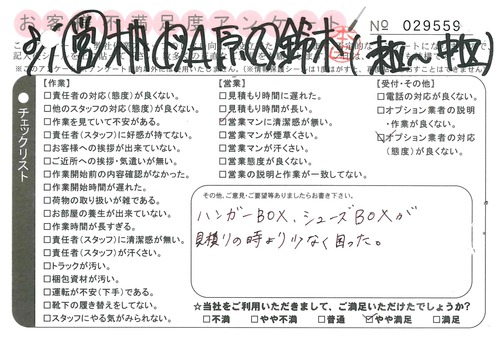 お客様満足度アンケート
No 029559
チェックリスト
【作業】
□責任者の対応(態度)が良くない。
□他のスタッフの対応(態度)が良くない。
□作業を見ていて不安がある。
□責任者(スタッフ)に好感が持てない。
□お客様への挨拶が出来ていない。
□ご近所への挨拶・気遣いが無い。
□作業開始前の内容確認がなかった。
□作業開始時間が遅れた。
□荷物の取り扱いが雑である。
□お部屋の養生が出来ていない。
□作業時間が長すぎる。
□責任者(スタッフ)に清潔感が無い。
□責任者(スタッフ)が汗くさい。
□トラックが汚い。
□梱包資材が汚い。
□運転が不安(下手)である。
□靴下の履き替えをしてない。
□スタッフにやる気がみられない。
【営業】
□見積もり時間に遅れた。
□見積もり時間が長い。
☑営業マンに清潔感が無い。
□営業マンが煙草くさい。
□営業マンが汗くさい。
□営業態度が良くない。
□営業の説明と作業が一致してない。
【受付・その他】
□電話の対応が良くない。
□オプション業者の説明
・作業が良くない。
□オプション業者の対応
(態度)が良くない。
その他、ご意見・ご要望等ありましたらお書き下さい。
ハンガーBOX、シューズBOXが
見積りの時より少なく困った。
☆当社をご利用いただきまして、ご満足いただけたでしょうか?
□不満 □やや不満 □普通 ☑やや満足 □満足